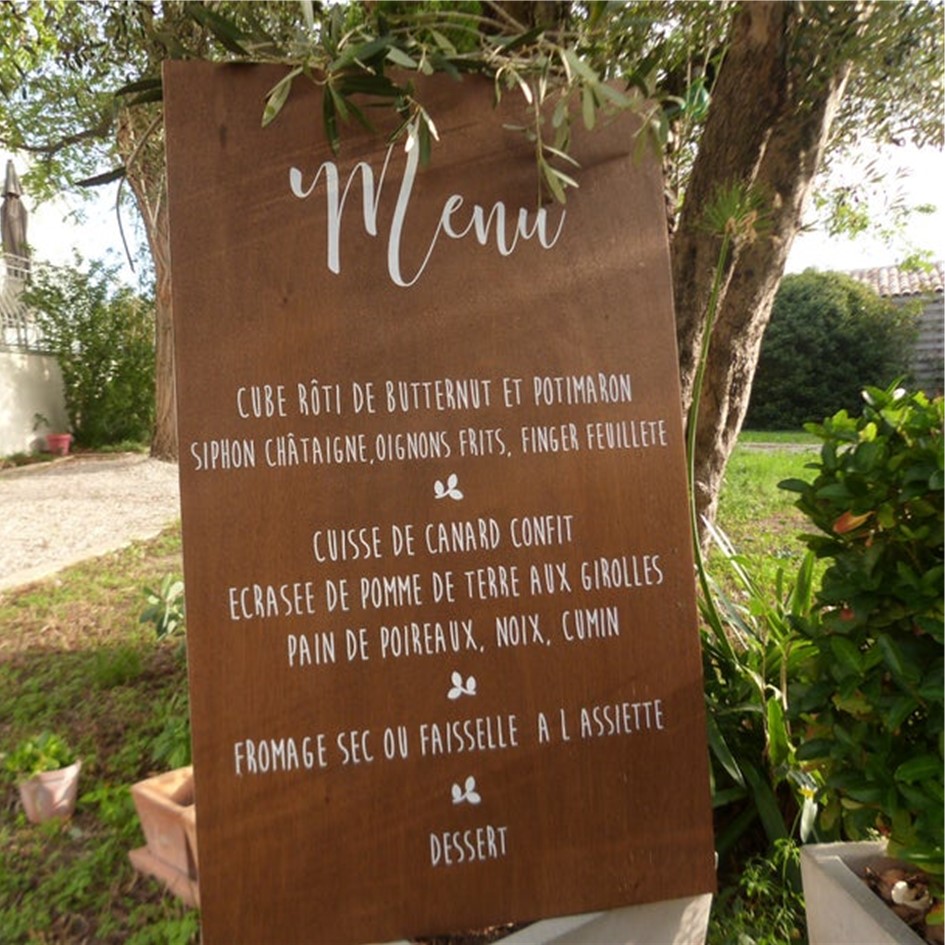 Menu
CUBE RÔTI DE BUTTERNUT ET POTIMARON
SIPHON CHÂTAIGNE,OIGNONS FRITS, FINGER FEUILLETE
CUISSE DE CANARD CONFIT
ECRASEE DE POMME DE TERRE AUX GIROLLES
PAIN DE POIREAUX, NOIX, CUMIN
FROMAGE SEC OU FAISSELLE A L ASSIETTE
DESSERT